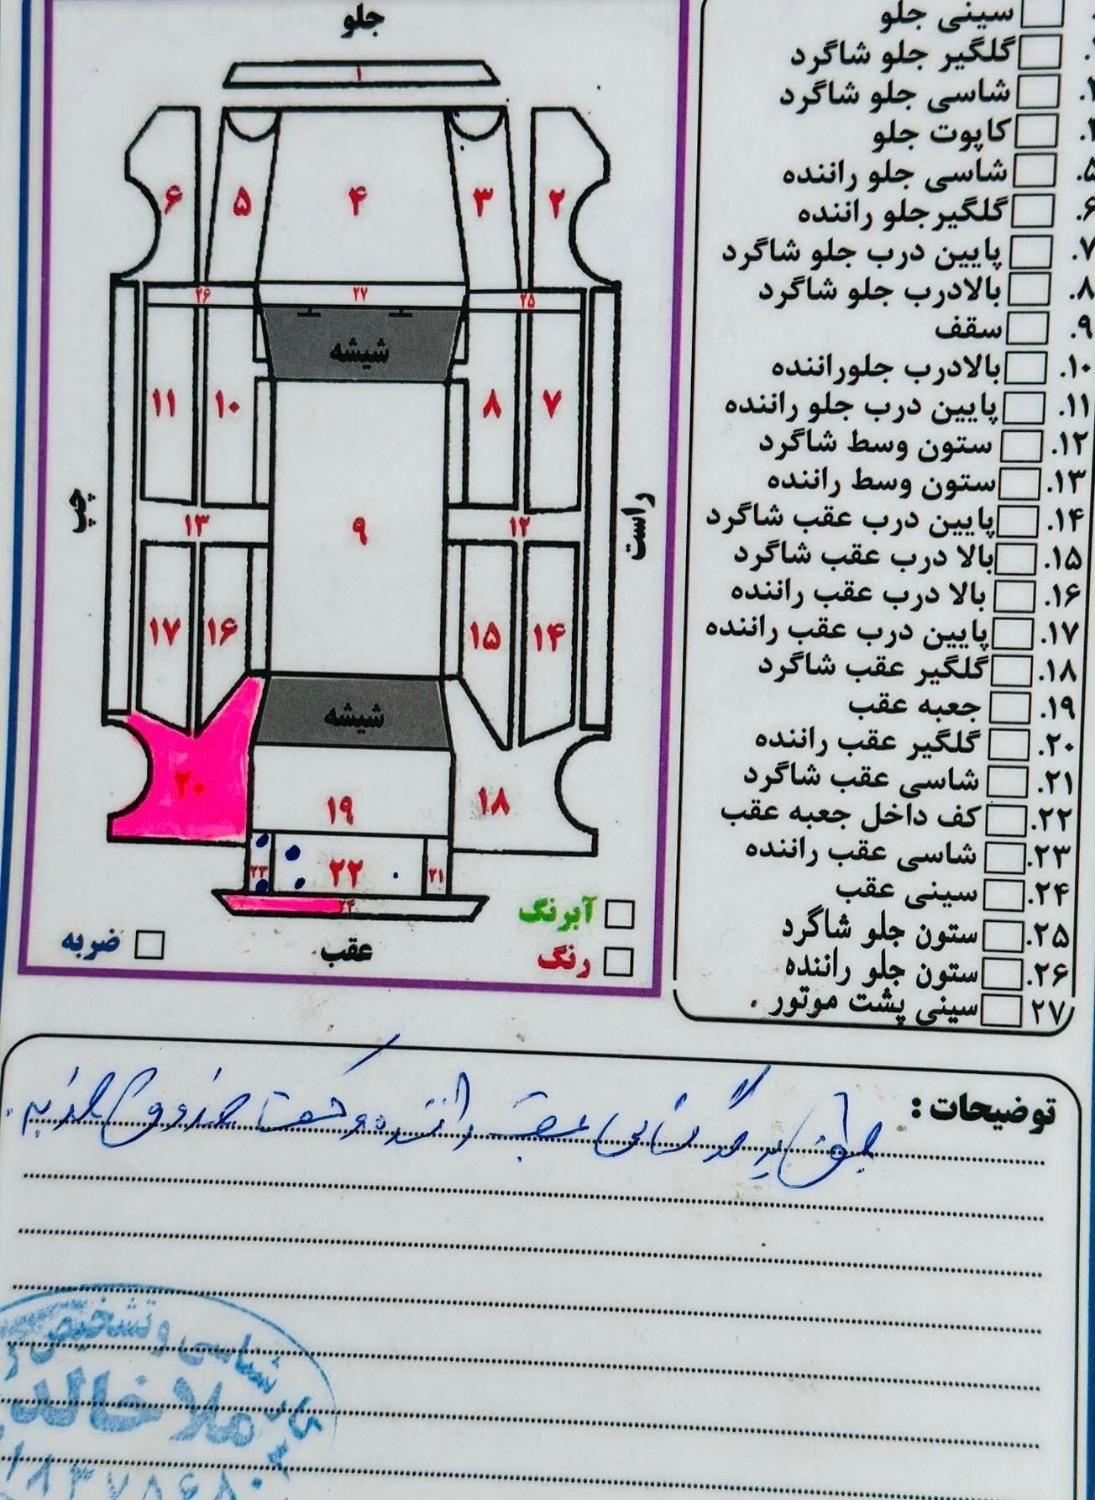 جلو
۱
۶ ۵ ۴ ۳ ۲
۲۶ ۲۷ ۲۵
شیشه
۱۱ ۱۰ ۸ ۷
چپ
راست
۱۳ ۹ ۱۲
۱۷ ۱۶ ۱۵ ۱۴
شیشه
۲۰ ۱۹ ۱۸
۲۳ ۲۲ ۲۱
۲۴
آبرنگ
ضربه عقب رنگ
سینی جلو
گلگیر جلو شاگرد
شاسی جلو شاگرد
کاپوت جلو
۵. شاسی جلو راننده
۶. گلگیرجلو راننده
۷. پایین درب جلو شاگرد
۸. بالادرب جلو شاگرد
۹. سقف
۱۰. بالادرب جلوراننده
۱۱. پایین درب جلو راننده
۱۲. ستون وسط شاگرد
۱۳. ستون وسط راننده
۱۴. پایین درب عقب شاگرد
۱۵. بالا درب عقب شاگرد
۱۶. بالا درب عقب راننده
۱۷. پایین درب عقب راننده
۱۸. گلگیر عقب شاگرد
۱۹. جعبه عقب
۲۰. گلگیر عقب راننده
۲۱. شاسی عقب شاگرد
۲۲. کف داخل جعبه عقب
۲۳. شاسی عقب راننده
۲۴. سینی عقب
۲۵. ستون جلو شاگرد
۲۶. ستون جلو راننده
۲۷. سینی پشت موتور
توضیحات :
شاسی عقب راننده و کف صندوق ضربه
کارشناسی و تشخیص
ملاخالد